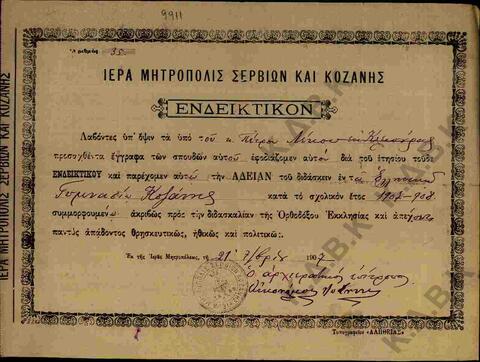 9911
Ἀριθμὸς 35
ΙΕΡΑ ΜΗΤΡΟΠΟΛΙΣ ΣΕΡΒΙΩΝ ΚΑΙ ΚΟΖΑΝΗΣ
ΙΕΡΑ ΜΗΤΡΟΠΟΛΙΣ ΣΕΡΒΙΩΝ ΚΑΙ ΚΟΖΑΝΗΣ
ΕΝΔΕΙΚΤΙΚΟΝ
Λαβόντες ὑπ' ὄψιν τὰ ὑπὸ τοῦ κ. Πέτρου
προσαχθέντα ἔγγραφα τῶν σπουδῶν αὐτοῦ ἐφοδιάζομεν αὐτὸν διὰ τοῦ ἐτησίου τοῦδε
ΕΝΔΕΙΚΤΙΚΟΥ καὶ παρέχομεν αὐτῷ τὴν ΑΔΕΙΑΝ τοῦ διδάσκειν ἐν τῷ Ἑλληνικῷ
Γυμνασίῳ Κοζάνης κατὰ τὸ σχολικὸν ἔτος 1907-908
συμμορφουμένῳ ἀκριβῶς πρὸς τὴν διδασκαλίαν τῆς Ὀρθοδόξου Ἐκκλησίας καὶ ἀπέχοντι
παντὸς ἀπᾴδοντος θρησκευτικῶς, ἠθικῶς καὶ πολιτικῶς.
Ἐκ τῆς Ἱερᾶς Μητροπόλεως, τῇ 21 7/βρίου 1907
Ὁ ἀρχιερατικὸς ἐπίτροπος
Οἰκονόμος
Τυπογραφεῖον «ΑΛΗΘΕΙΑΣ»
Κ.Δ.Β.Κ